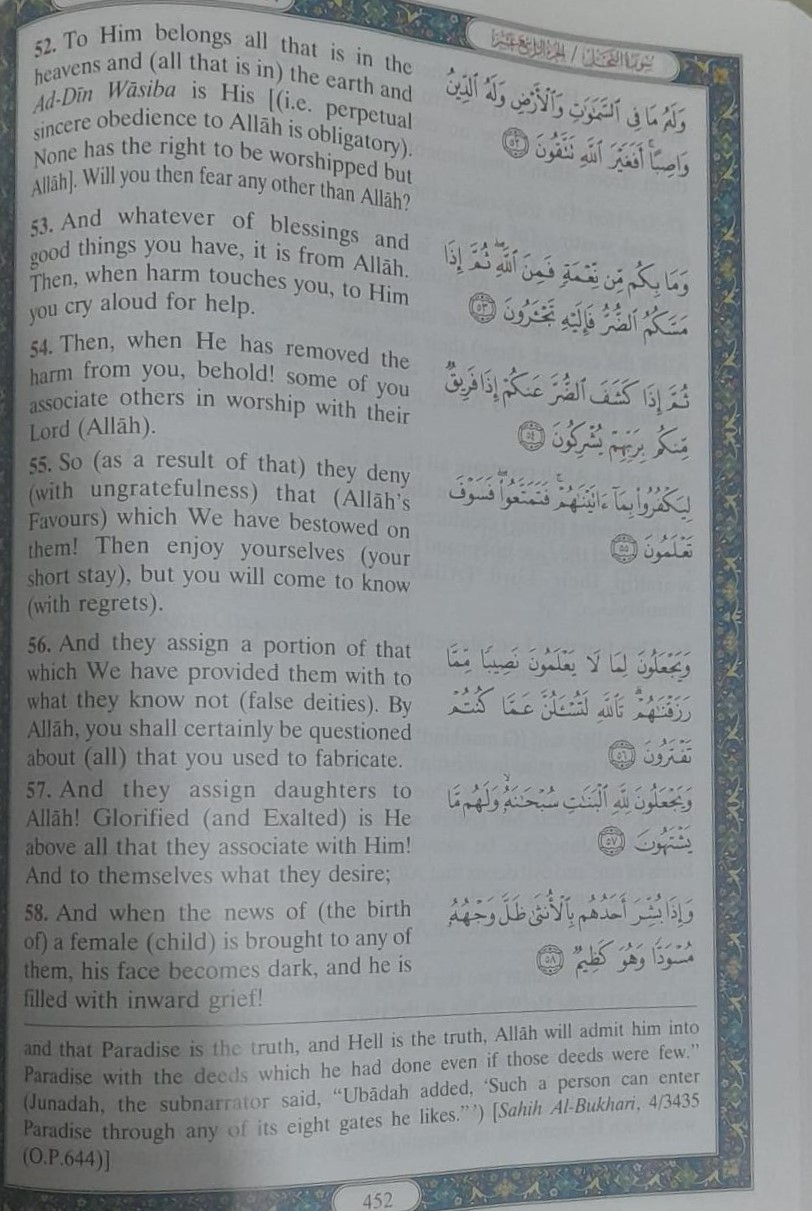 سورة النحل / الجزء الرابع عشر
52. To Him belongs all that is in the
heavens and (all that is in) the earth and
Ad-Dīn Wāsiba is His [(i.e. perpetual
sincere obedience to Allāh is obligatory).
None has the right to be worshipped but
Allāh]. Will you then fear any other than Allāh?
وَلَهُۥ مَا فِى ٱلسَّمَٰوَٰتِ وَٱلْأَرْضِ وَلَهُ ٱلدِّينُ
وَاصِبًا ۚ أَفَغَيْرَ ٱللَّهِ تَتَّقُونَ ٥٢
53. And whatever of blessings and
good things you have, it is from Allāh.
Then, when harm touches you, to Him
you cry aloud for help.
وَمَا بِكُم مِّن نِّعْمَةٍ فَمِنَ ٱللَّهِ ۖ ثُمَّ إِذَا
مَسَّكُمُ ٱلضُّرُّ فَإِلَيْهِ تَجْـَٔرُونَ ٥٣
54. Then, when He has removed the
harm from you, behold! some of you
associate others in worship with their
Lord (Allāh).
ثُمَّ إِذَا كَشَفَ ٱلضُّرَّ عَنكُمْ إِذَا فَرِيقٌ
مِّنكُم بِرَبِّهِمْ يُشْرِكُونَ ٥٤
55. So (as a result of that) they deny
(with ungratefulness) that (Allāh's
Favours) which We have bestowed on
them! Then enjoy yourselves (your
short stay), but you will come to know
(with regrets).
لِيَكْفُرُوا۟ بِمَآ ءَاتَيْنَٰهُمْ ۚ فَتَمَتَّعُوا۟ ۖ فَسَوْفَ
تَعْلَمُونَ ٥٥
56. And they assign a portion of that
which We have provided them with to
what they know not (false deities). By
Allāh, you shall certainly be questioned
about (all) that you used to fabricate.
وَيَجْعَلُونَ لِمَا لَا يَعْلَمُونَ نَصِيبًا مِّمَّا
رَزَقْنَٰهُمْ ۗ تَٱللَّهِ لَتُسْـَٔلُنَّ عَمَّا كُنتُمْ
تَفْتَرُونَ ٥٦
57. And they assign daughters to
Allāh! Glorified (and Exalted) is He
above all that they associate with Him!
And to themselves what they desire;
وَيَجْعَلُونَ لِلَّهِ ٱلْبَنَٰتِ سُبْحَٰنَهُۥ ۙ وَلَهُم مَّا
يَشْتَهُونَ ٥٧
58. And when the news of (the birth
of) a female (child) is brought to any of
them, his face becomes dark, and he is
filled with inward grief!
وَإِذَا بُشِّرَ أَحَدُهُم بِٱلْأُنثَىٰ ظَلَّ وَجْهُهُۥ
مُسْوَدًّا وَهُوَ كَظِيمٌ ٥٨
and that Paradise is the truth, and Hell is the truth, Allāh will admit him into
Paradise with the deeds which he had done even if those deeds were few."
(Junadah, the subnarrator said, "Ubādah added, 'Such a person can enter
Paradise through any of its eight gates he likes."') [Sahih Al-Bukhari, 4/3435
(O.P.644)]
452